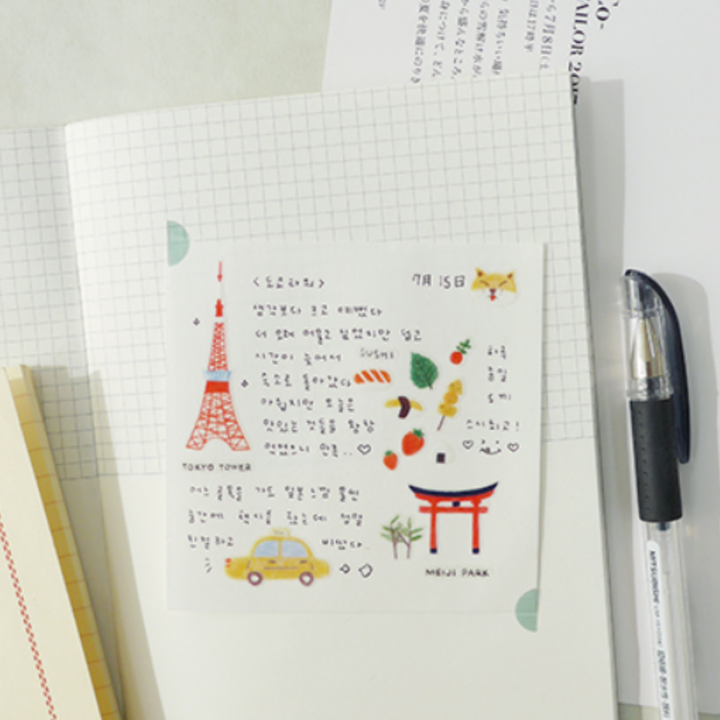 <도쿄타워> 7月 15日
생각보다 크고 예뻤다
더 오래 머물고 싶었지만 덥고
시간이 늦어서 SUSHI
숙소로 돌아갔다 하루
아쉽지만 오늘은 종일
맛있는 것들을 왕창 5끼
먹었으니 만족.. 스시최고!
TOKYO TOWER
어느 골목을 가도 일본 느낌 물씬
중간에 택시를 탔는데 정말
친절하고 비쌌다..
MEIJI PARK
MITSUBISHI